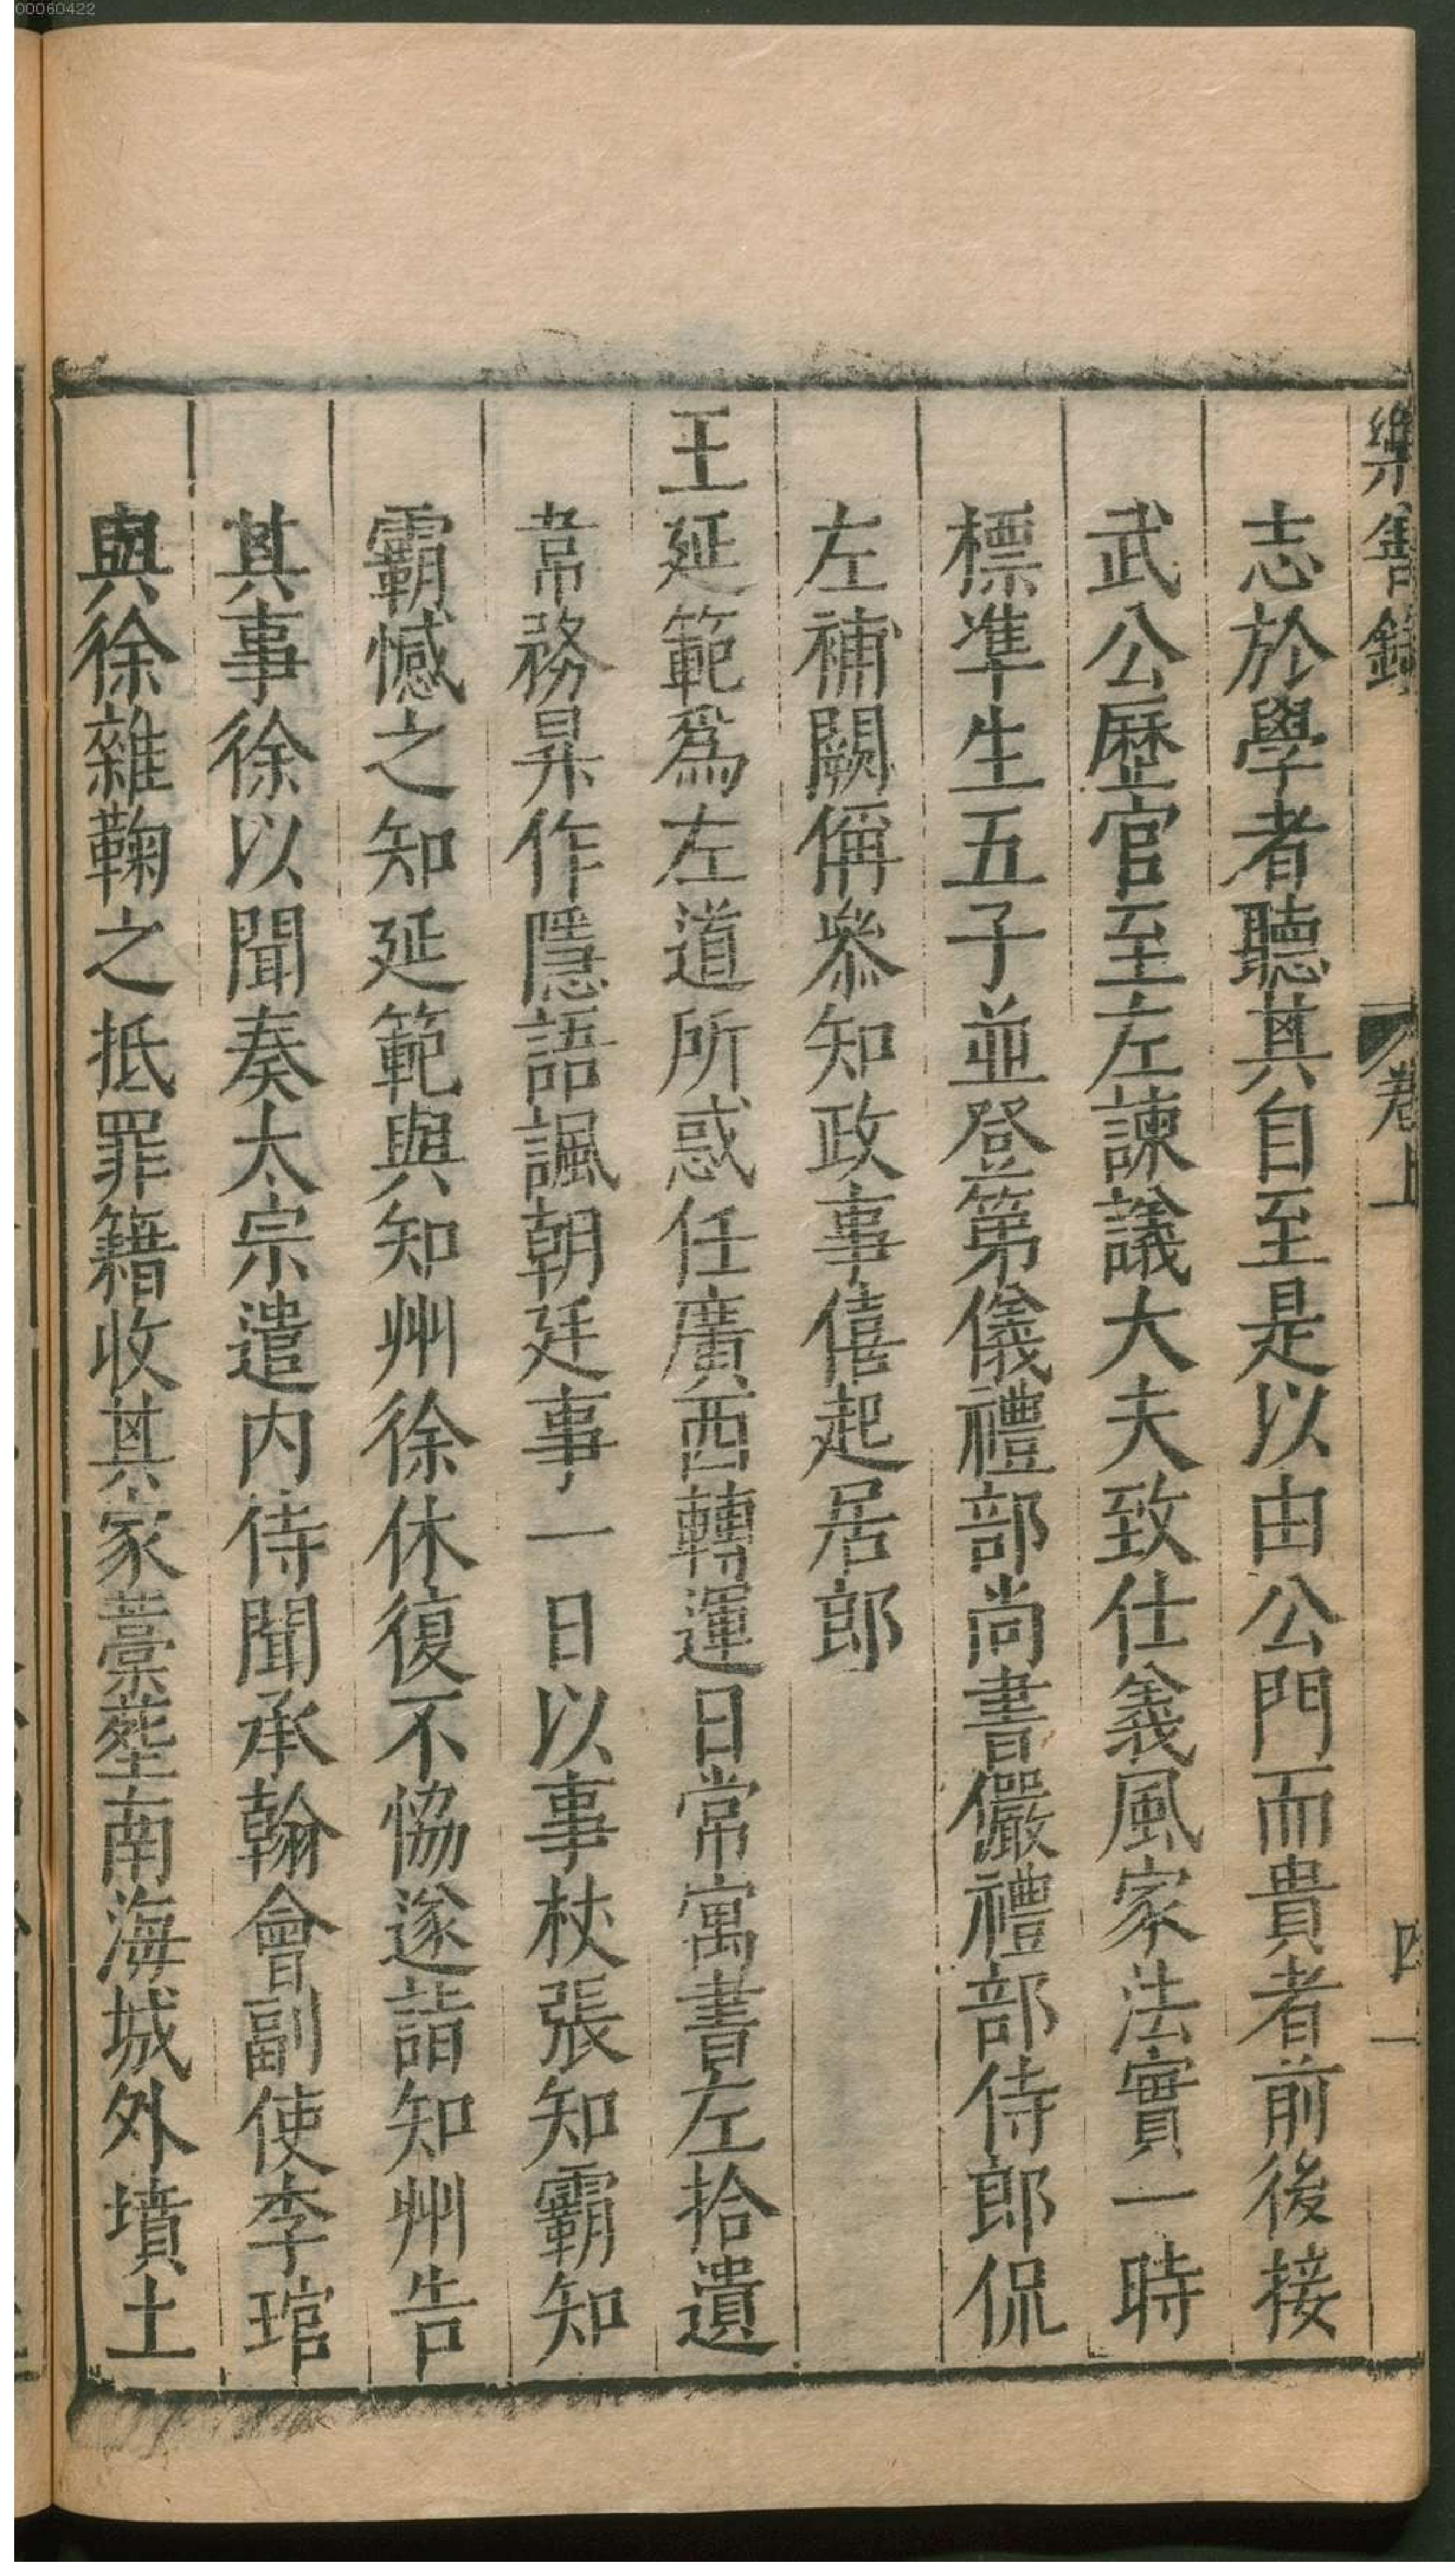 00060422
樂善錄 卷上 四一
志於學者聽其自至是以由公門而貴者前後接
武公歷官至左諫議大夫致仕義風家法實一時
標準生五子並登第儀禮部尚書儼禮部侍郎侃
左補闕偁叅知政事僖起居郎
王延範爲左道所惑任廣西轉運日常寓書左拾遺
韋務昇作隱語諷朝廷事一日以事杖張知霸知
霸憾之知延範與知州徐休復不恊遂詣知州告
其事徐以聞奏太宗遣内侍閻承翰會副使李琯
與徐雜鞠之抵罪籍收其家藁塟南海城外墳土